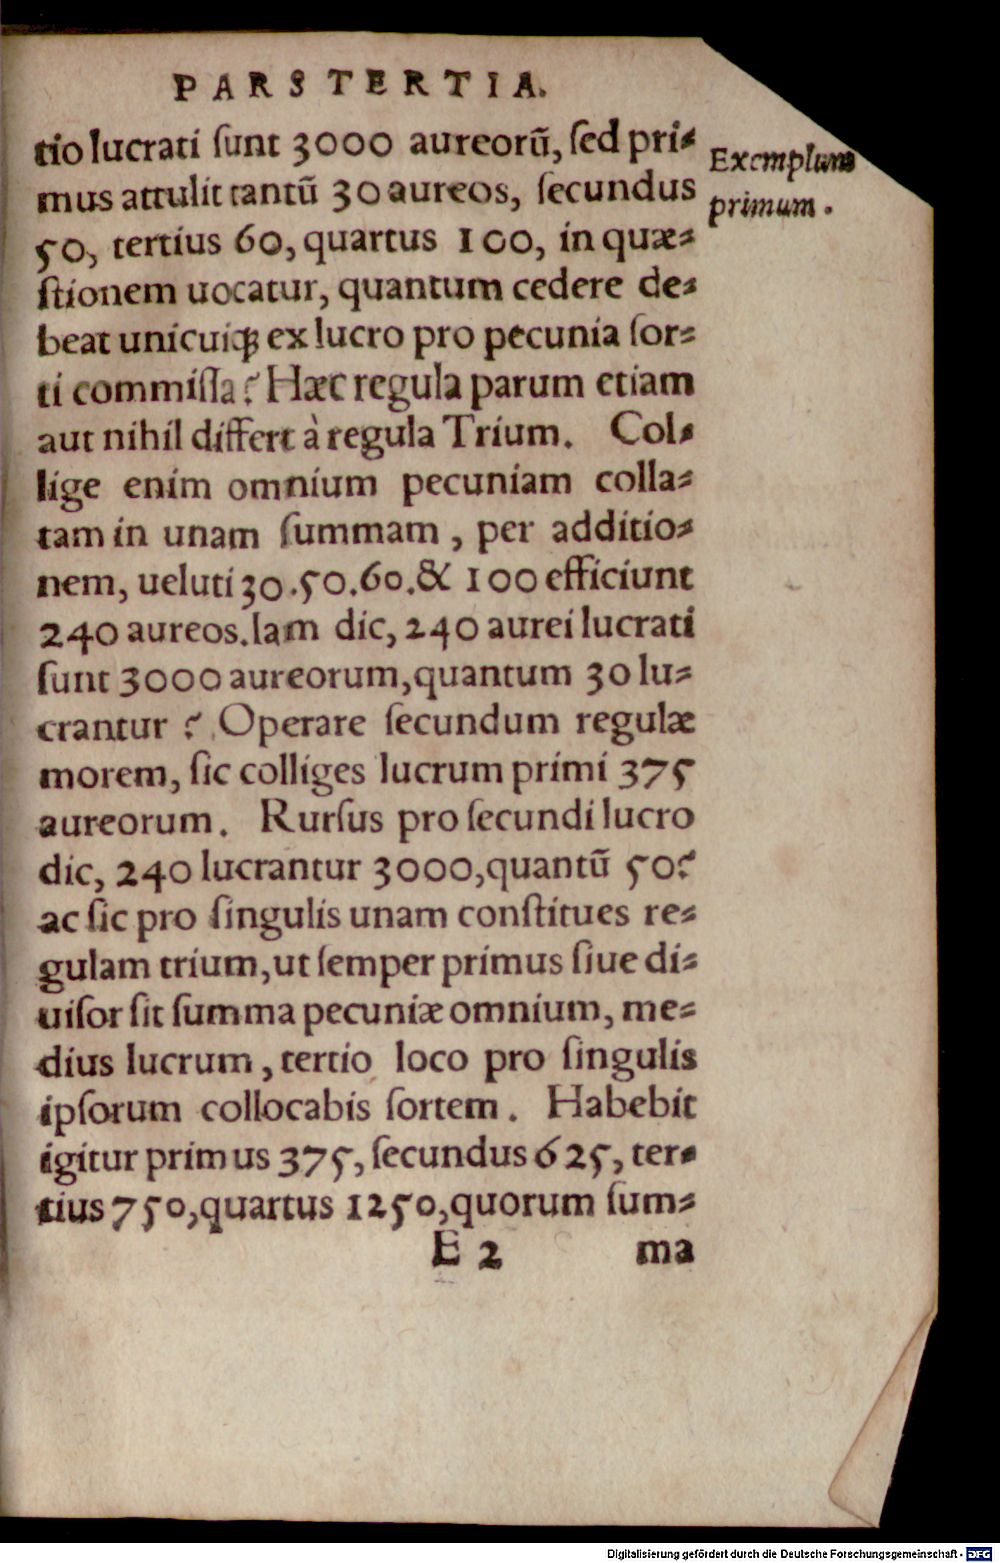 PARS TERTIA.
tio lucrati ſunt 3000 aureorũ, ſed pri⸗
Exemplum
mus attulit tantũ 30 aureos, ſecundus
primum.
50, tertius 60, quartus 100, in quæ⸗
ſtionem uocatur, quantum cedere de⸗
beat unicuiqꝫ ex lucro pro pecunia ſor⸗
ti commiſſa? Hæc regula parum etiam
aut nihil differt à regula Trium. Col⸗
lige enim omnium pecuniam colla⸗
tam in unam ſummam, per additio⸗
nem, ueluti 30.50.60.& 100 efficiunt
240 aureos. Iam dic, 240 aurei lucrati
ſunt 3000 aureorum, quantum 30 lu⸗
crantur? Operare ſecundum regulæ
morem, ſic colliges lucrum primi 375
aureorum. Rurſus pro ſecundi lucro
dic, 240 lucrantur 3000, quantũ 50?
ac ſic pro ſingulis unam conſtitues re⸗
gulam trium, ut ſemper primus ſiue di⸗
uiſor ſit ſumma pecuniæ omnium, me⸗
dius lucrum, tertio loco pro ſingulis
ipſorum collocabis ſortem. Habebit
igitur primus 375, ſecundus 625, ter⸗
tius 750, quartus 1250, quorum ſum⸗
E 2 ma
Digitalisierung gefördert durch die Deutsche Forschungsgemeinschaft - DFG